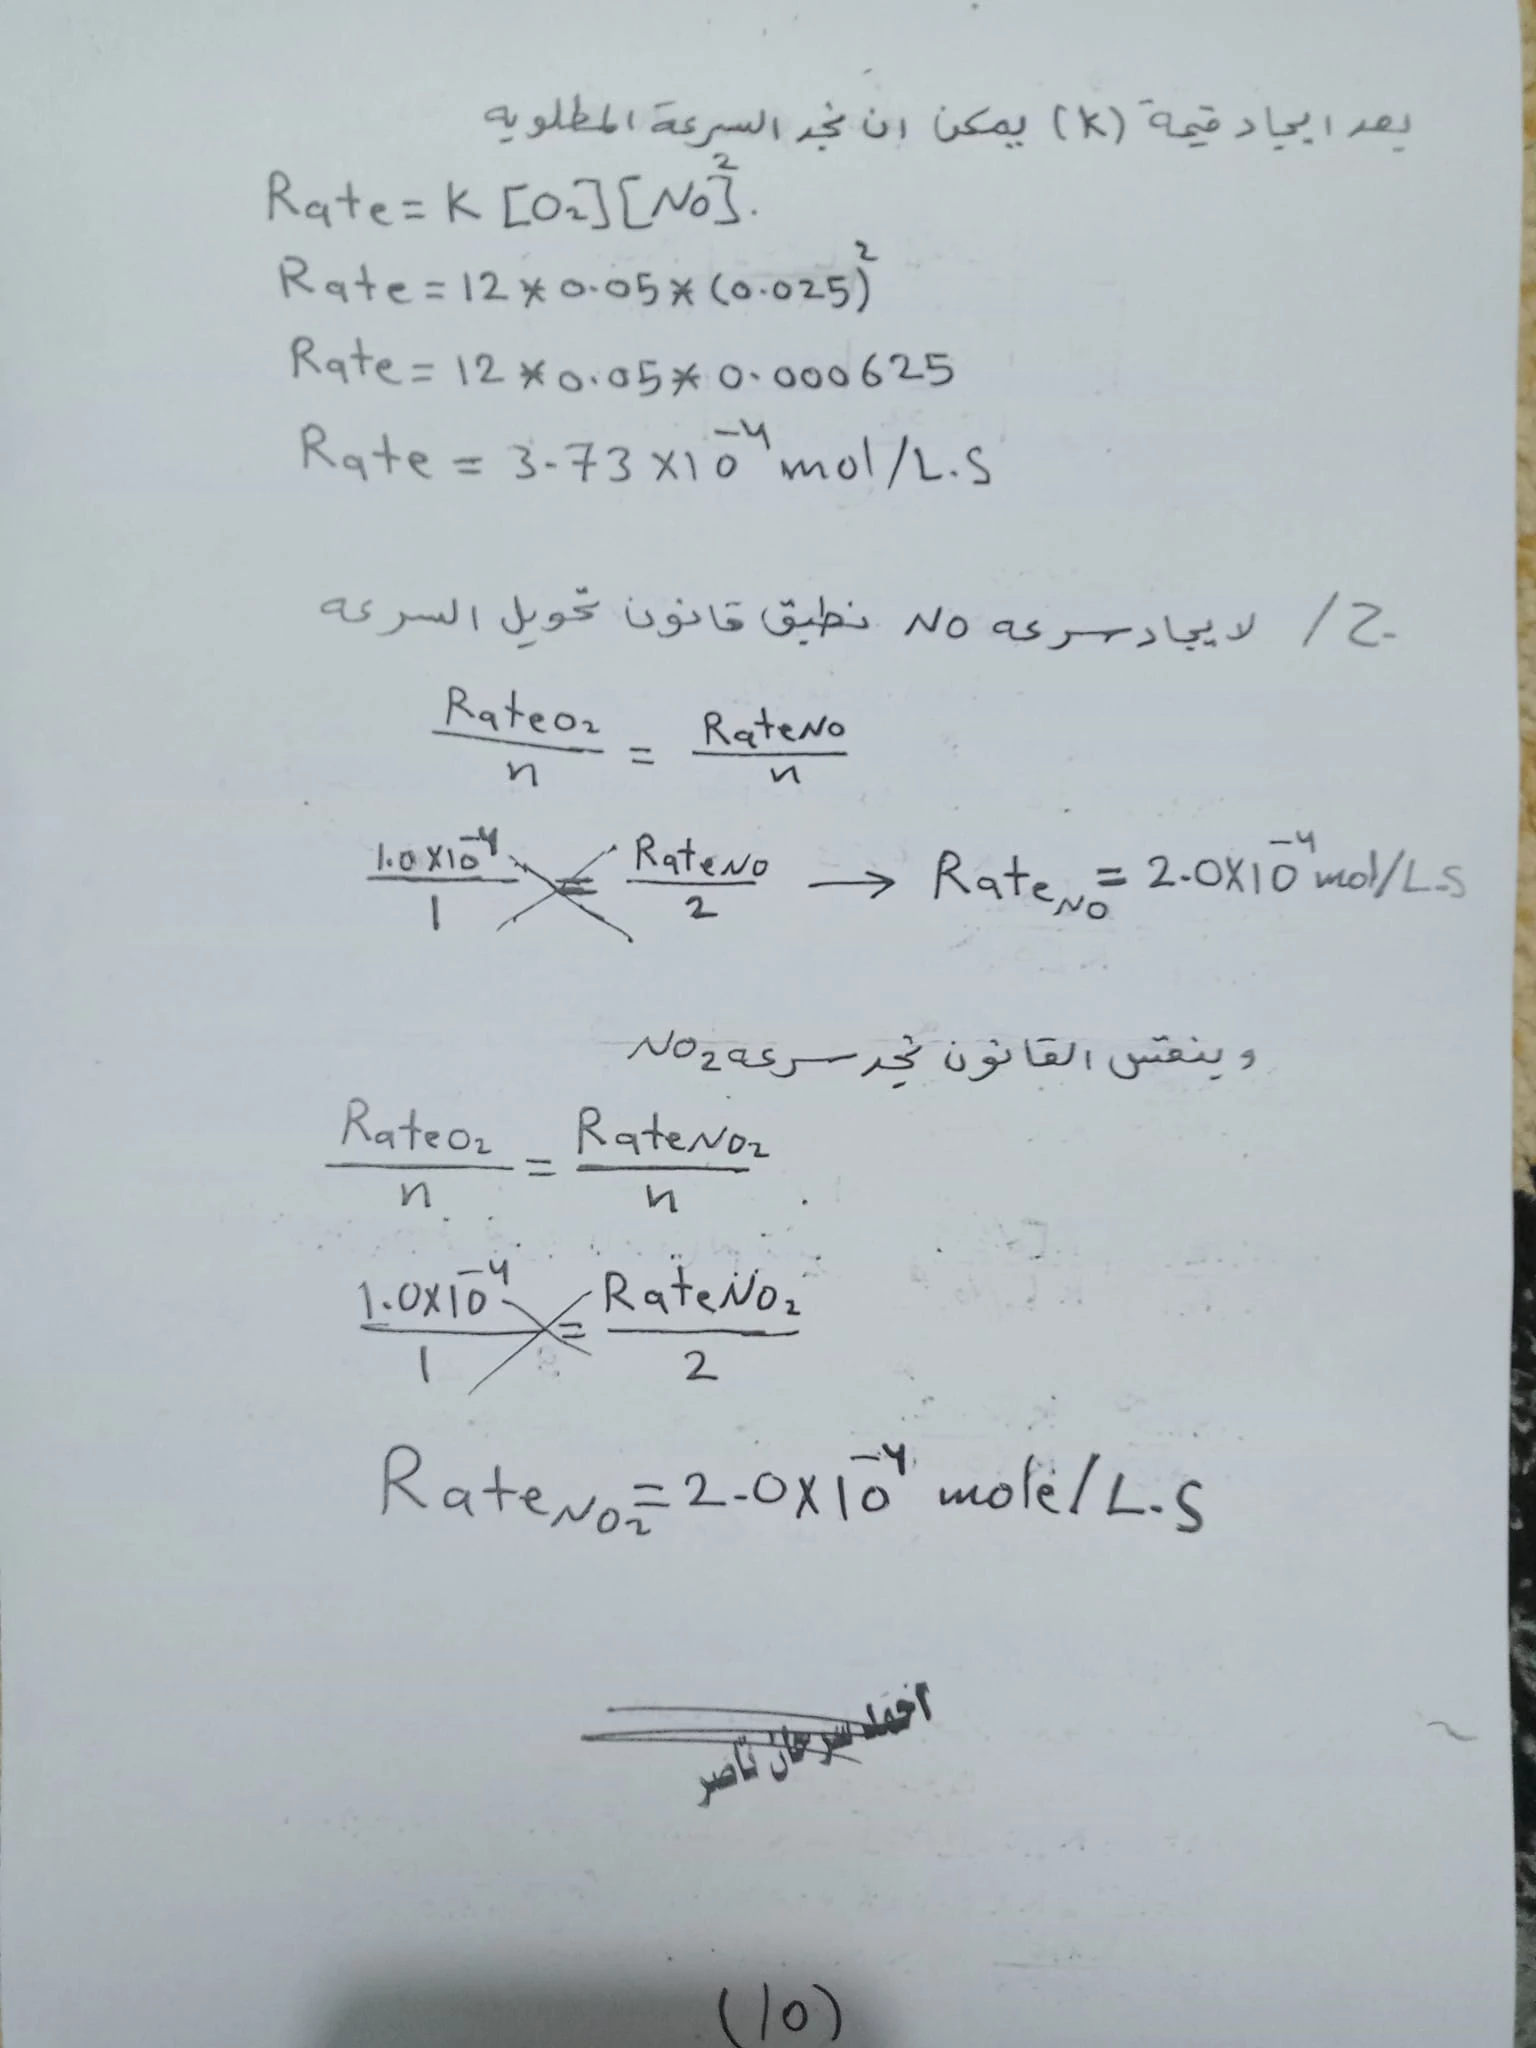 بعد ايجاد قيمة (K) يمكن ان نجد السرعة المطلوبه
Rate = K [O₂][NO]².
Rate = 12 * 0.05 * (0.025)²
Rate = 12 * 0.05 * 0.000625
Rate = 3.73 × 10⁻⁴ mol/L.S
ج/ لايجاد سرعه NO نطبق قانون تحويل السرعه
Rate O₂ / n = Rate NO / n
1.0×10⁻⁴ / 1 = Rate NO / 2 → Rate NO = 2.0×10⁻⁴ mol/L.S
وبنفس القانون نجد سرعه NO₂
Rate O₂ / n = Rate NO₂ / n
1.0×10⁻⁴ / 1 = Rate NO₂ / 2
Rate NO₂ = 2.0×10⁻⁴ mole/L.S
احمد سرحان ناصر
(10)